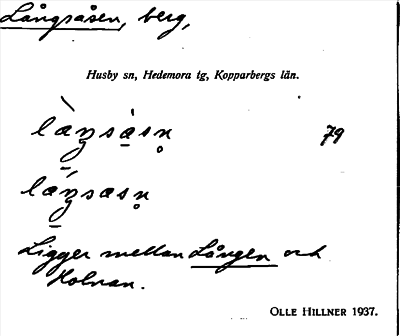 Långsåsen, berg,
Husby sn, Hedemora tg, Kopparbergs län.
79
Ligger mellan Lången och
Holvan.
OLLE HILLNER 1937.